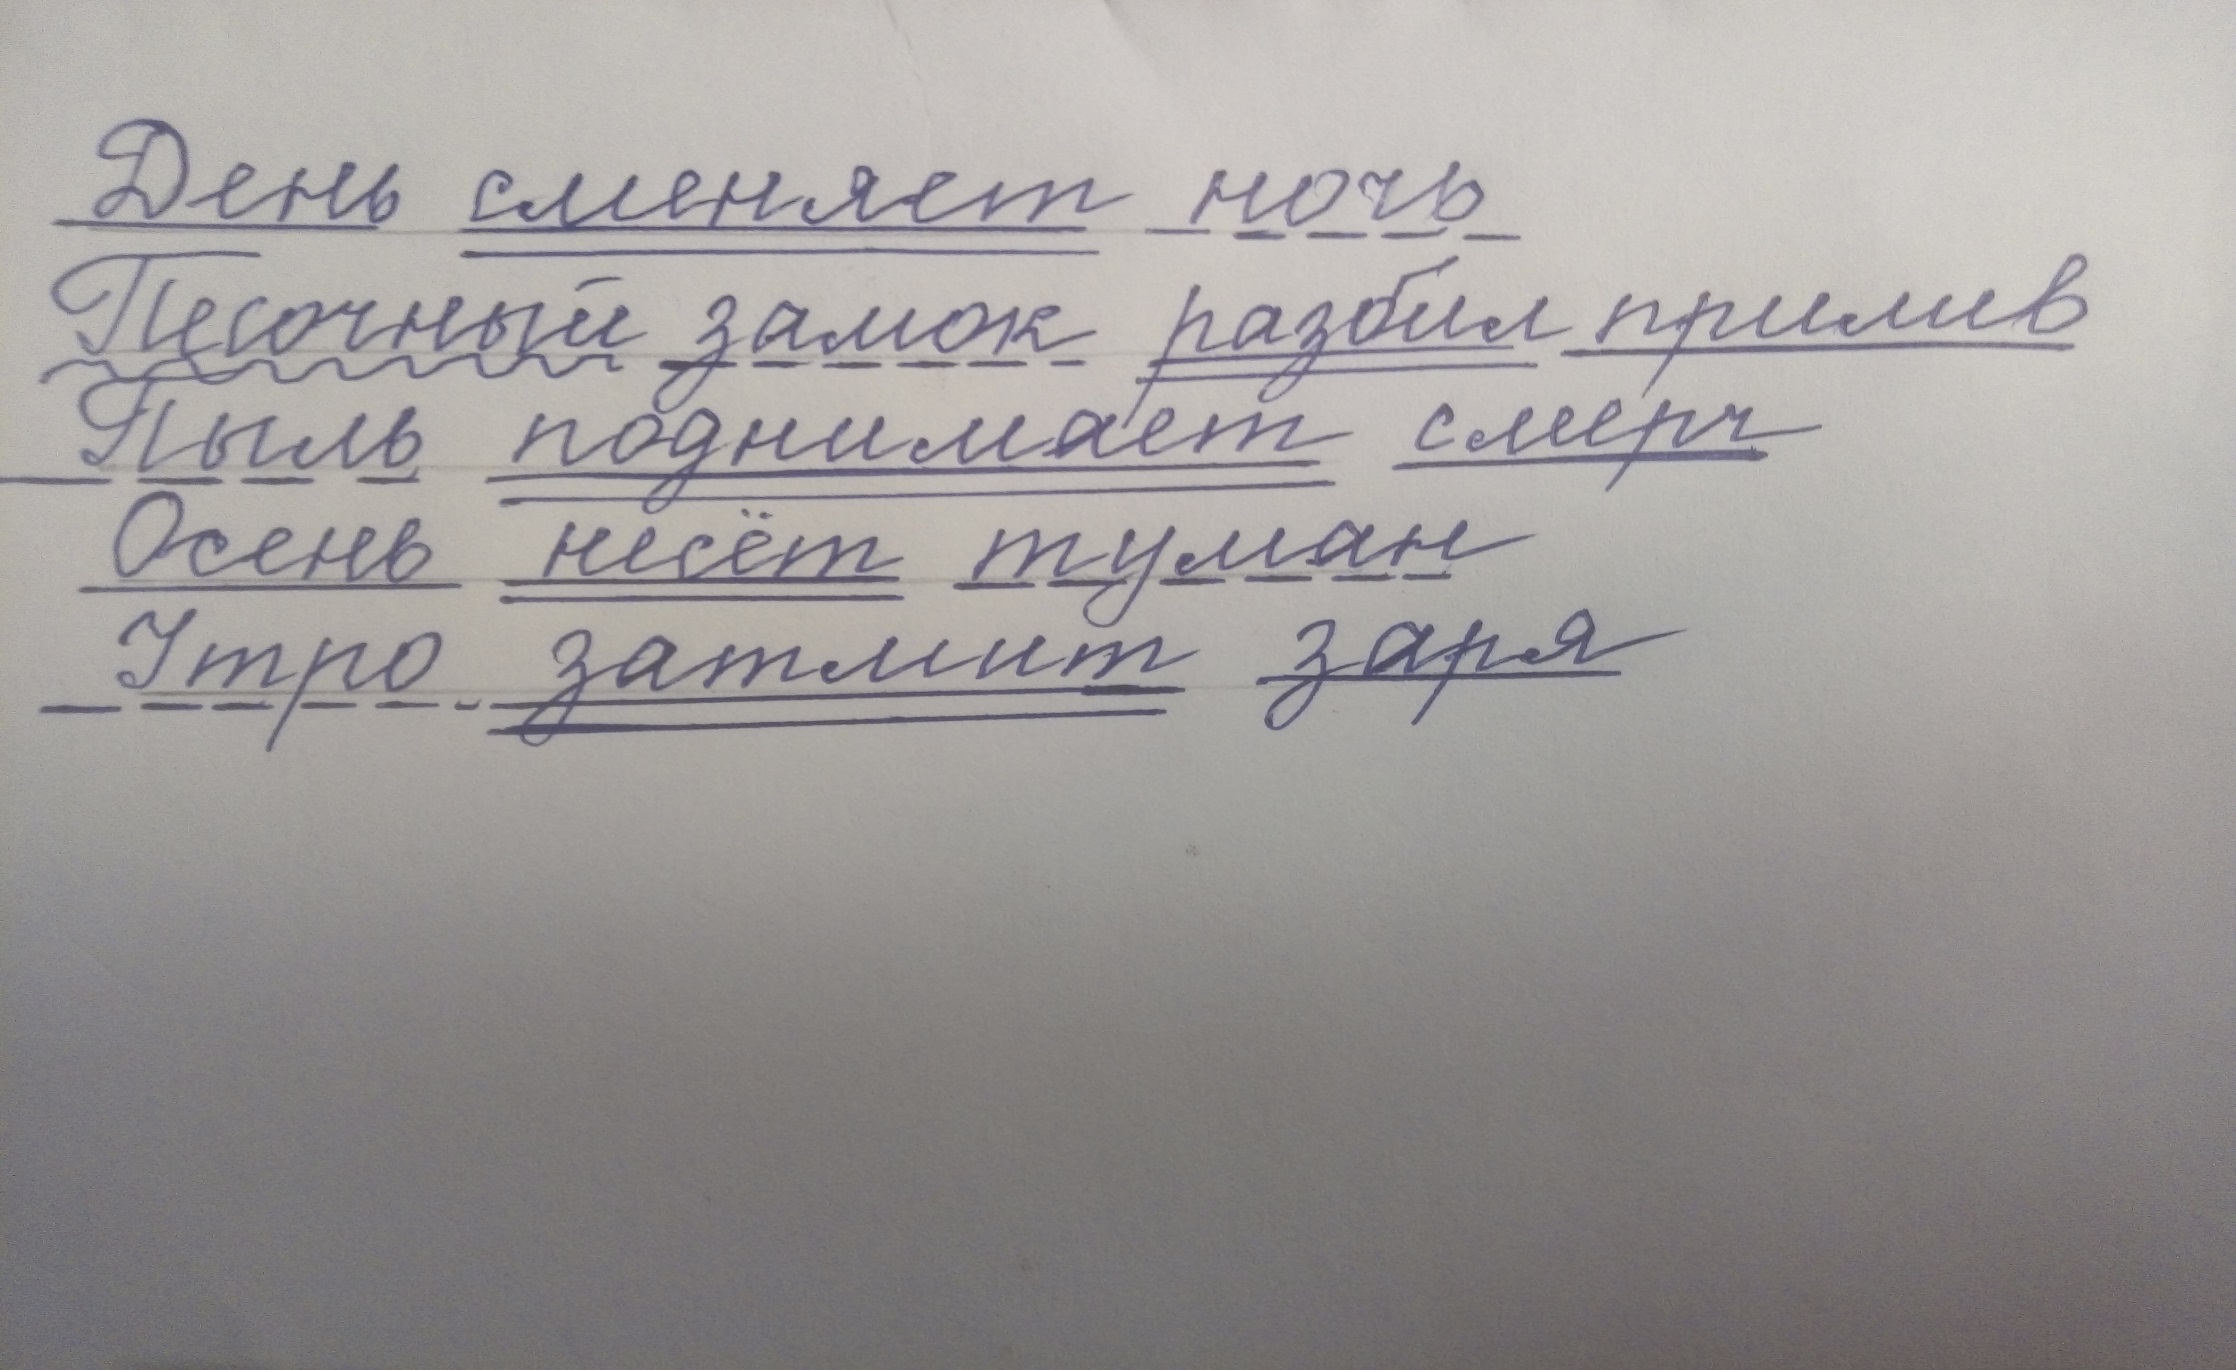 День сменяет ночь
Песочный замок разбил прилив
Пыль поднимает смерч
Осень несёт туман
Утро затмит заря